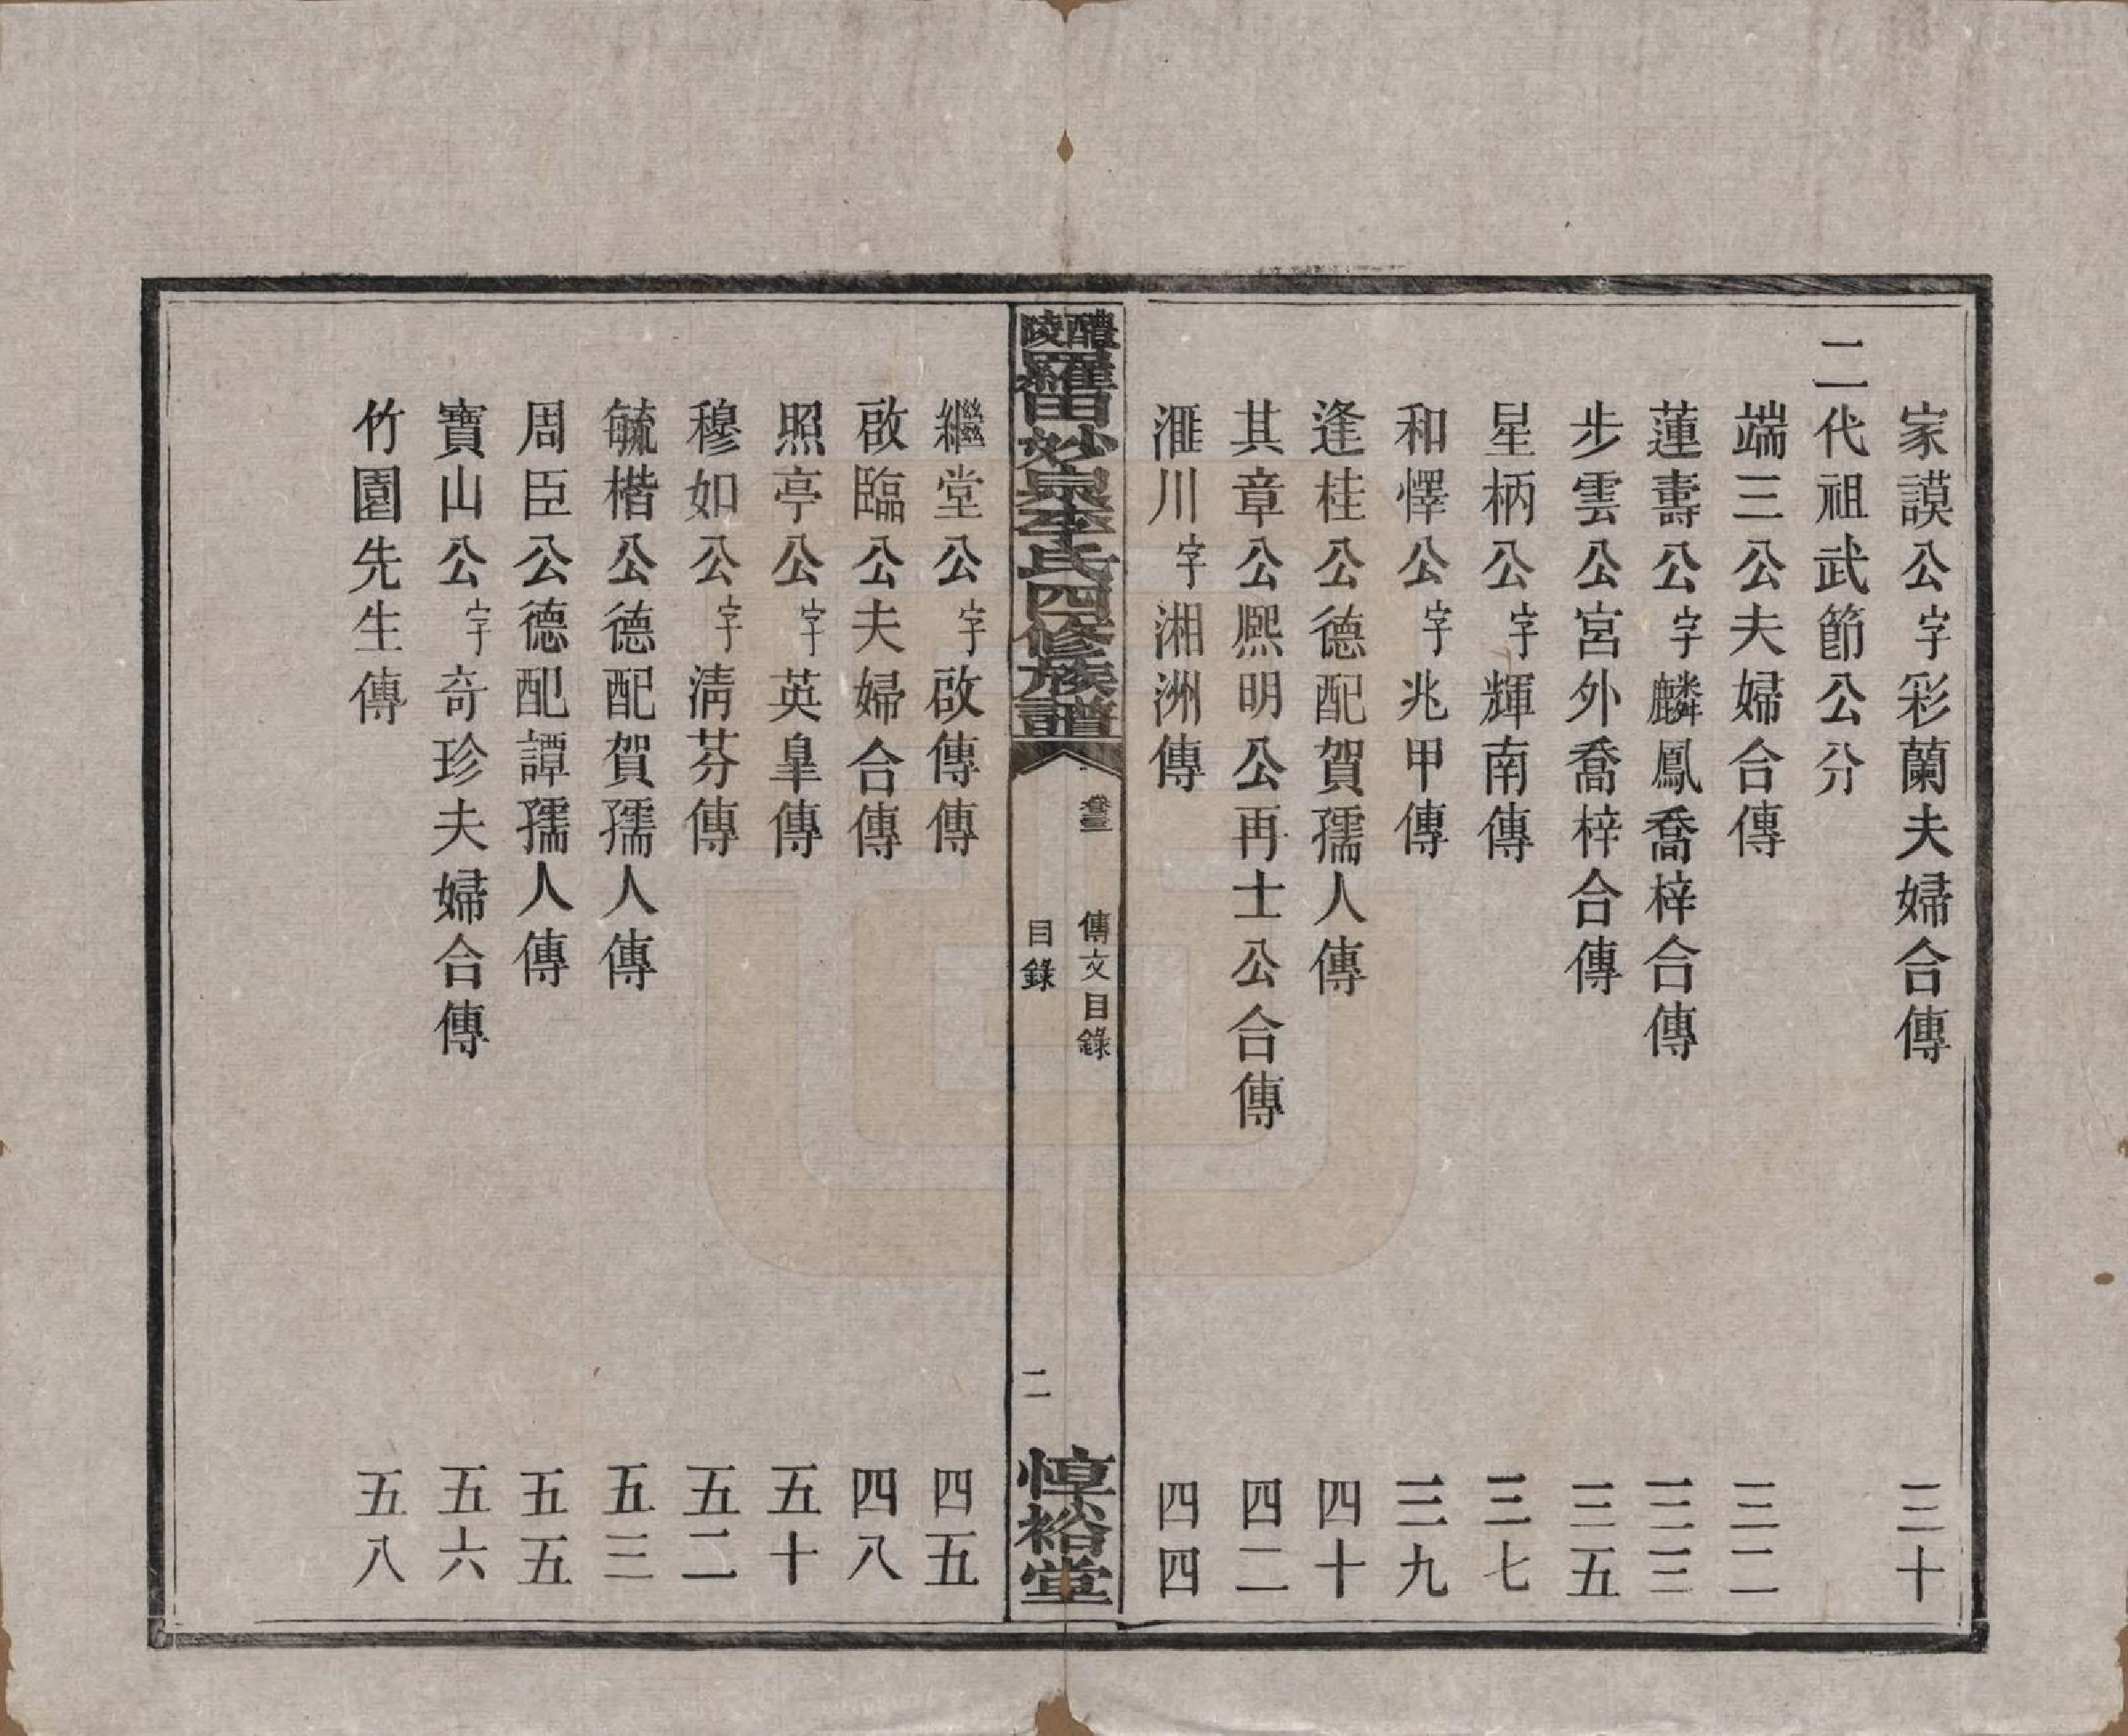 家謨公字彩蘭夫婦合傳 三十
二代祖武節公分
端三公夫婦合傳 三二
蓮壽公字麟鳳喬梓合傳 三三
步雲公宮外喬梓合傳 三五
星柄公字輝南傳 三七
和懌公字兆甲傳 三九
逢桂公德配賀孺人傳 四十
其章公熙明公再士公合傳 四二
滙川字湘洲傳 四四
醴陵羅田妙泉李氏四修族譜
卷三 傳文目錄
目錄 二
惇裕堂
繼堂公字啟傳傳 四五
啟臨公夫婦合傳 四八
照亭公字英臯傳 五十
穆如公字清芬傳 五二
毓楷公德配賀孺人傳 五三
周臣公德配譚孺人傳 五五
寶山公字奇珍夫婦合傳 五六
竹園先生傳 五八